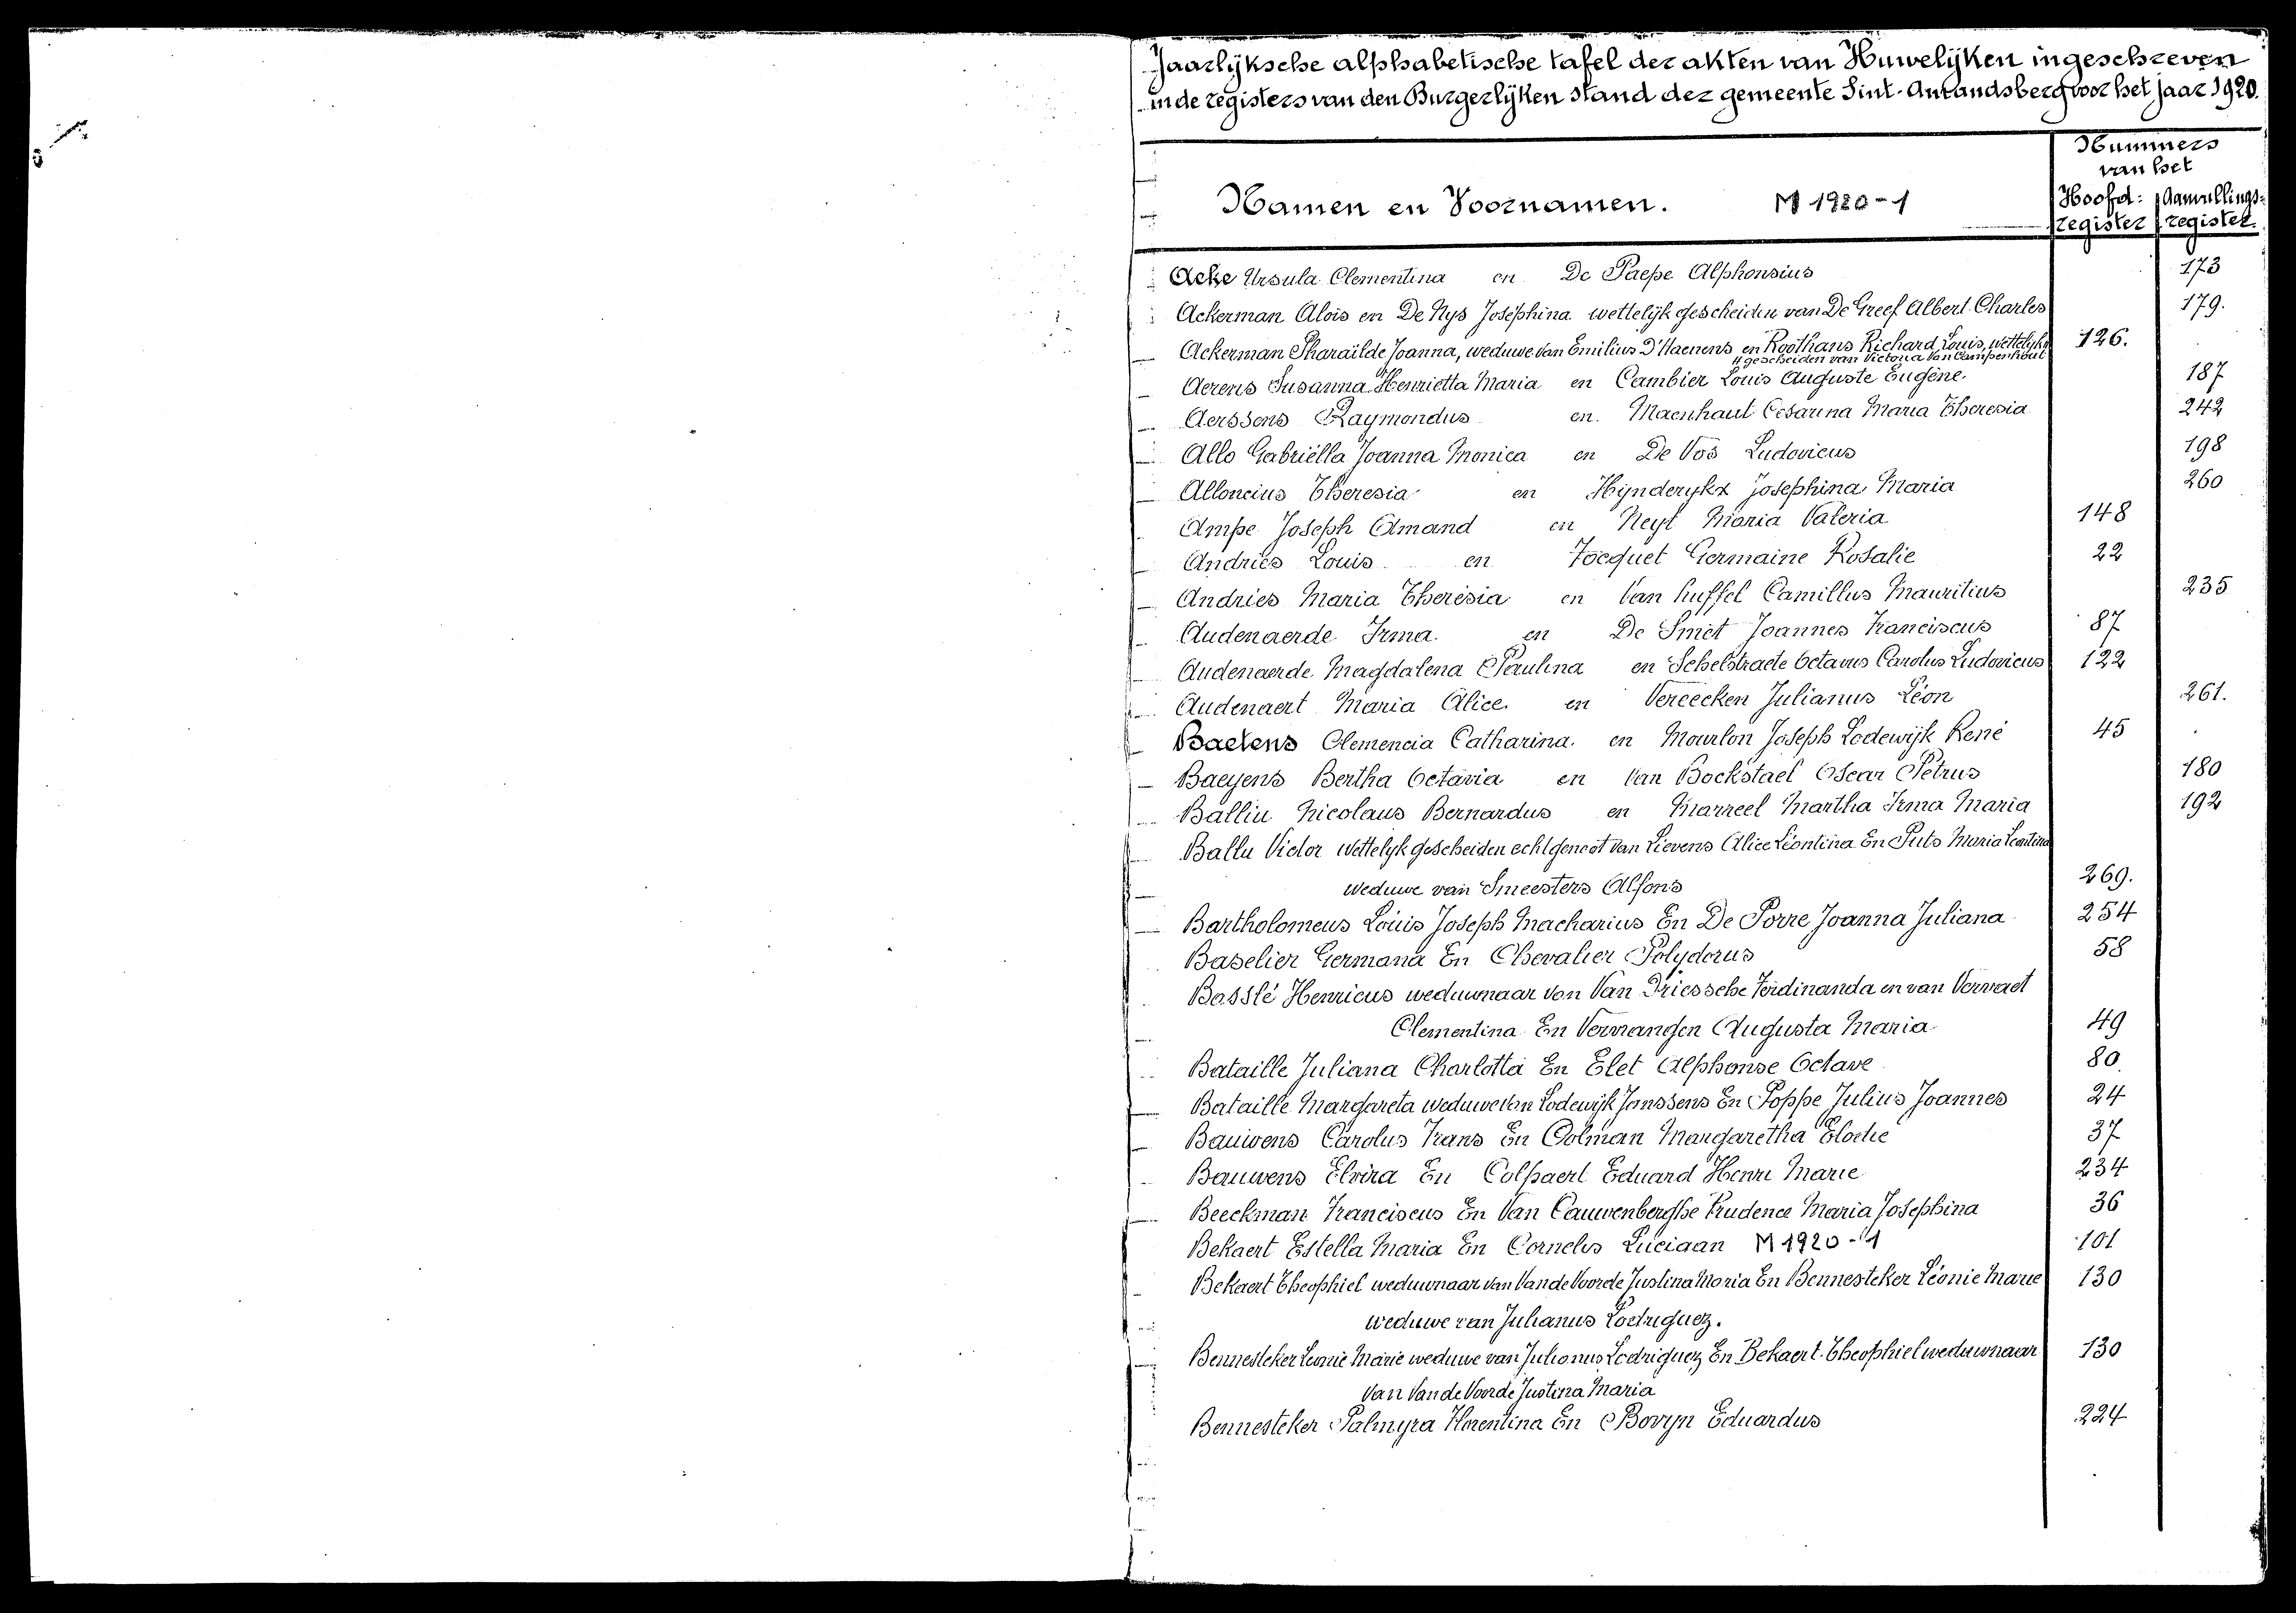 Jaarlijksche alphabetische tafel der akten van Huwelijken ingeschreven
in de registers van den Burgerlijken stand der gemeente Sint-Amandsberg voor het jaar 1920.
Nummers
van het
Namen en Voornamen. M 1920-1
Hoofd: Aanvullings-
register register
Acke Ursula Clementina en De Paepe Alphonsius 173
Ackerman Aloïs en De Nys Joséphina wettelijk gescheiden van De Greef Albert Charles 179.
Ackerman Pharaïlde Joanna, weduwe van Emilius D'Haenens en Roothans Richard Louis, wettelijk 126.
gescheiden van Victoria Van Campenhout
Aerens Susanna Henrietta Maria en Cambier Louis Auguste Eugène. 187
Aerssens Raymondus en Maenhaut Cesarina Maria Theresia 242
Allo Gabriëlla Joanna Monica en De Vos Ludovicus 198
Alloncius Theresia en Hijnderykx Josephina Maria 260
Ampe Joseph Amand en Neyt Maria Valeria 148
Andries Louis en Focquet Germaine Rosalie 22
Andries Maria Theresia en Van huffel Camillus Mauritius 235
Audenaerde Irma en De Smet Joannes Franciscus 87
Audenaerde Magdalena Paulina en Schelstraete Octavus Carolus Ludovicus 122
Audenaert Maria Alice en Vereecken Julianus Léon 261.
Baetens Clemencia Catharina en Mourlon Joseph Lodewijk René 45
Baeyens Bertha Octavia en Van Bockstael Oscar Petrus 180
Balliu Nicolaus Bernardus en Marreel Martha Irma Maria 192
Ballu Victor wettelijk gescheiden echtgenoot van Lievens Alice Léontina En Puts Maria Leontina
weduwe van Smeesters Alfons 269.
Bartholomeus Louis Joseph Macharius En De Porre Joanna Juliana 254
Baselier Germana En Chevalier Polydorus 58
Basslé Henricus weduwnaar van Van Driessche Ferdinanda en van Vervaet
Clementina En Vernangen Augusta Maria 49
Bataille Juliana Charlotta En Elet Alphonse Octave 80
Bataille Margareta weduwe van Lodewijk Janssens En Poppe Julius Joannes 24
Bauwens Carolus Frans En Colman Margaretha Elodie 37
Bauwens Elvira En Colpaert Eduard Henri Marie 234
Beeckman Franciscus En Van Cauwenberghe Prudence Maria Josephina 36
Bekaert Estella Maria En Cornelis Luciaan M 1920-1 101
Bekaert Theophiel weduwnaar van Vande Voorde Justina Maria En Bennesteker Léonie Marie 130
weduwe van Julianus Lodriguez.
Bennesteker Leonie Marie weduwe van Julianus Lodriguez En Bekaert Theophiel weduwnaar 130
van Vande Voorde Justina Maria
Bennesteker Palmyra Florentina En Bovyn Eduardus 224